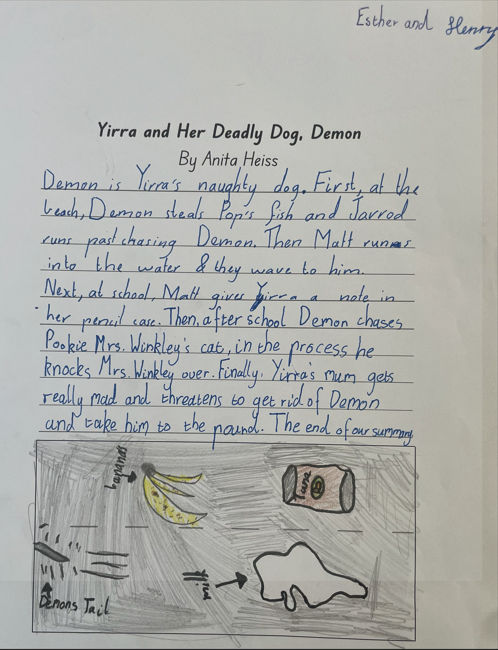 Esther and Henry
Yirra and Her Deadly Dog, Demon
By Anita Heiss
Demon is Yirra's naughty dog. First, at the
beach, Demon steals Pop's fish and Jarrod
runs past chasing Demon. Then Matt runs
into the water & they wave to him.
Next, at school, Matt gives Yirra a note in
her pencil case. Then, after school Demon chases
Pookie Mrs. Winkley's cat, in the process he
knocks Mrs. Winkley over. Finally, Yirra's mum gets
really mad and threatens to get rid of Demon
and take him to the pound. The end of our summary
bananas
Tuna
Demons Tail